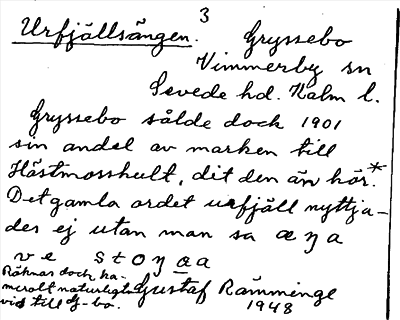 3
Urfjällsängen. Gryssebo
Vimmerby sn
Sevede hd. Kalm l.
Gryssebo sålde dock 1901
sin andel av marken till
Hästmosshult, dit den än hör.*
Det gamla ordet urfjäll nyttja-
des ej utan man sa æŋa
ve støŋaa
Räknas dock ka-
meralt naturligtvis
vid till G-bo.
Gustaf Ramminge
1948